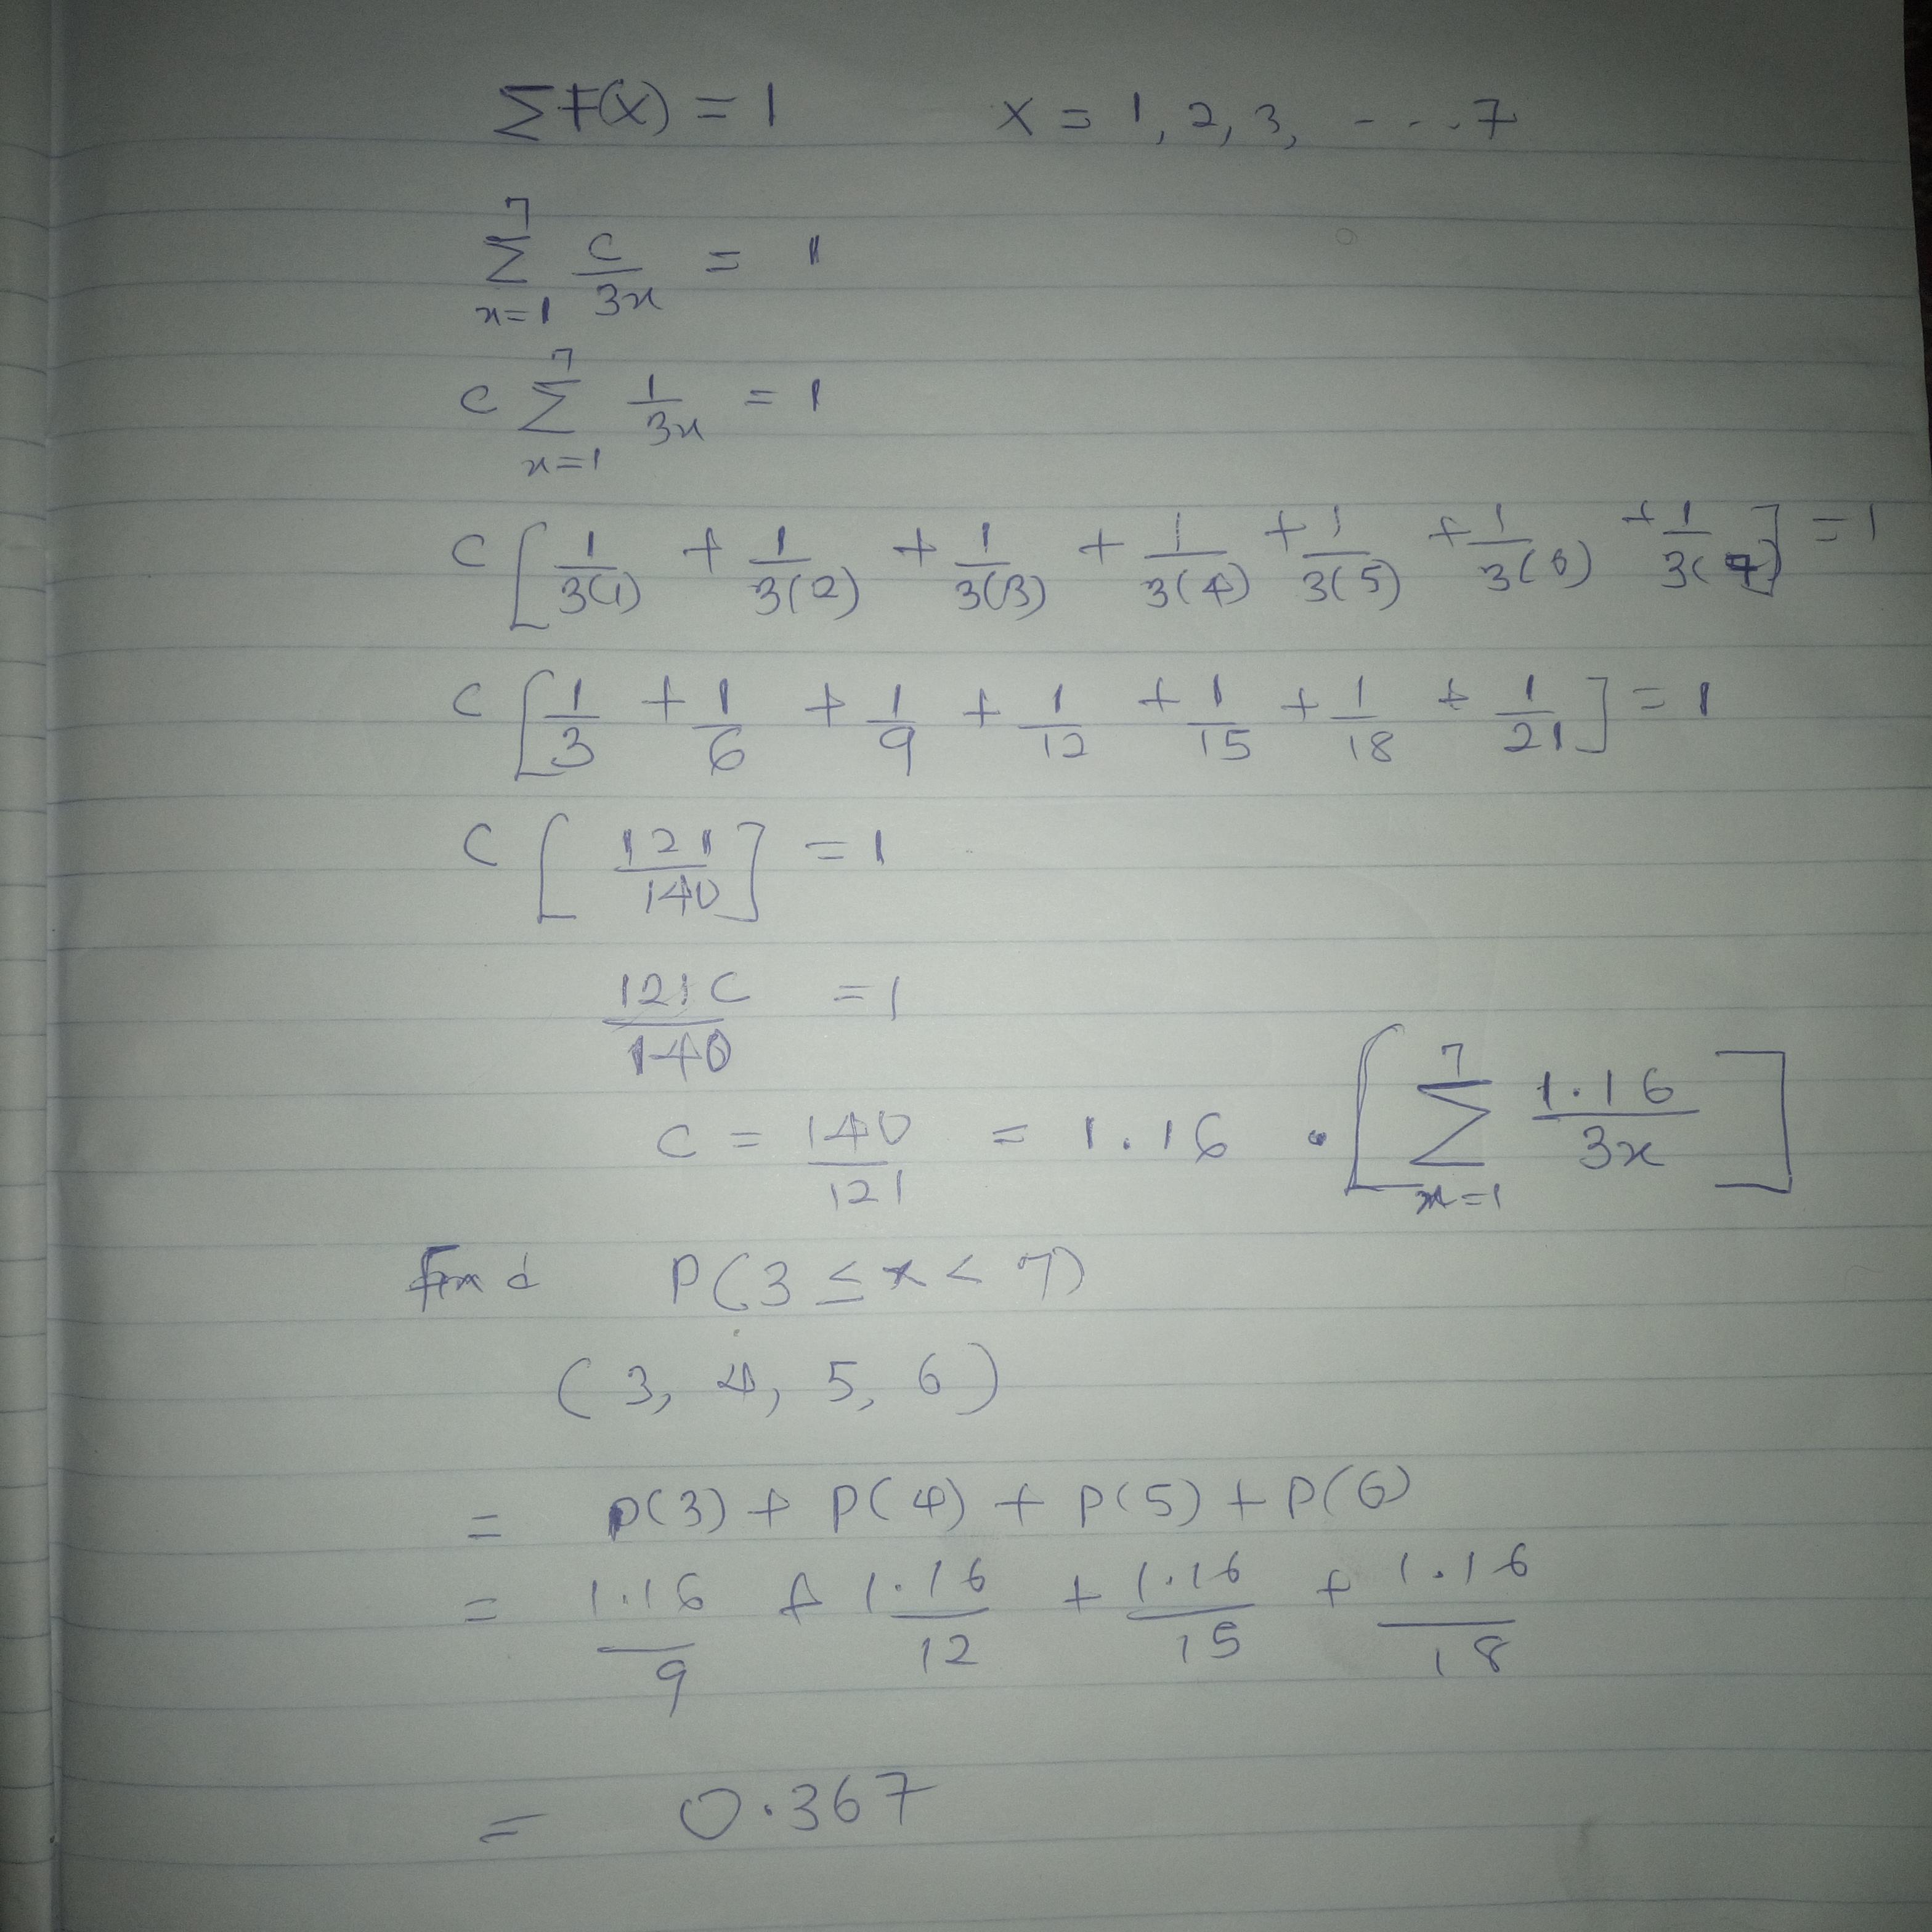 ∑f(x) = 1 X = 1, 2, 3, - - - . 7
7 ∑ x=1 c/3x = 1
c 7 ∑ x=1 1/3x = 1
c [ 1/3(1) + 1/3(2) + 1/3(3) + 1/3(4) + 1/3(5) + 1/3(6) + 1/3(7) ] = 1
c [ 1/3 + 1/6 + 1/9 + 1/12 + 1/15 + 1/18 + 1/21 ] = 1
c [ 121/140 ] = 1
121c/140 = 1
c = 140/121 = 1.16 . [ 7 ∑ x=1 1.16/3x ]
find P(3 ≤ x < 7)
(3, 4, 5, 6)
= p(3) + p(4) + p(5) + p(6)
= 1.16/9 + 1.16/12 + 1.16/15 + 1.16/18
= 0.367